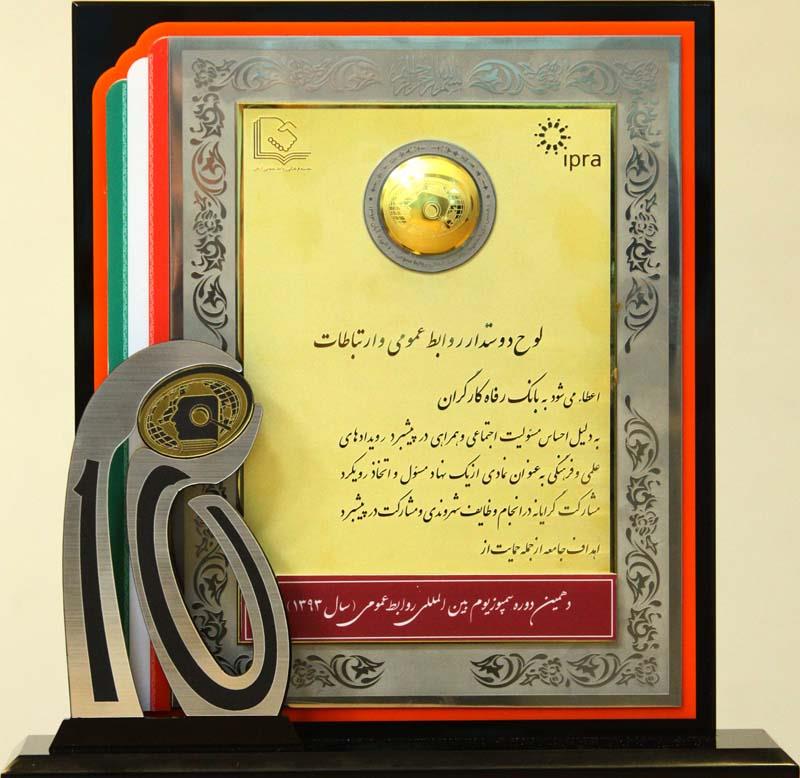 بسم الله الرحمن الرحیم
ipra
لوح دوستدار روابط عمومی و ارتباطات
اعطاء می شود به بانک رفاه کارگران
به دلیل احساس مسئولیت اجتماعی و همراهی در پیشبرد رویدادهای
علمی و فرهنگی به عنوان نمادی از یک نهاد مسئول و اتخاذ رویکرد
مشارکت گرایانه در انجام وظایف شهروندی و مشارکت در پیشبرد
اهداف جامعه از جمله حمایت از
دهمین دوره سمپوزیوم بین المللی روابط عمومی (سال ۱۳۹۳)
10